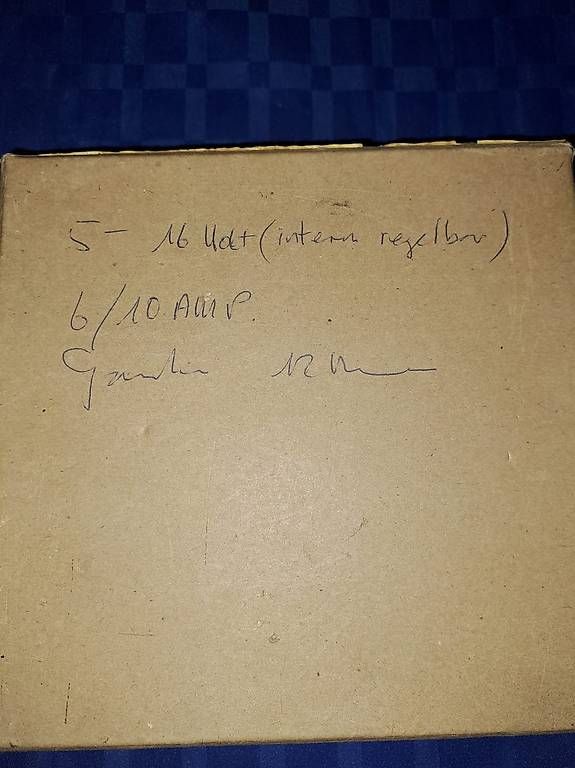 5 - 16 Volt (intern regelbar)
6/10 AMP.
Garantie 12 M